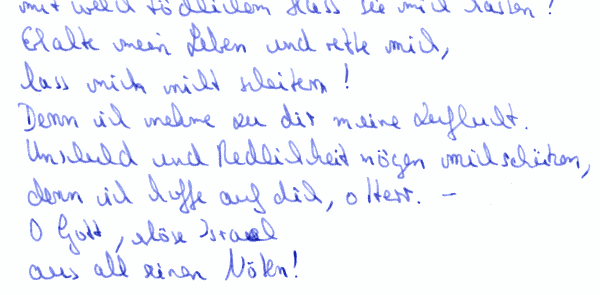 mit welch tödlichem Hass sie mich hassen!
Erhalte mein Leben und rette mich,
lass mich nicht scheitern!
Denn ich nehme zu dir meine Zuflucht.
Unschuld und Redlichkeit mögen mich schützen,
denn ich hoffe auf dich, o Herr. –
O Gott, erlöse Israel
aus all seinen Nöten!